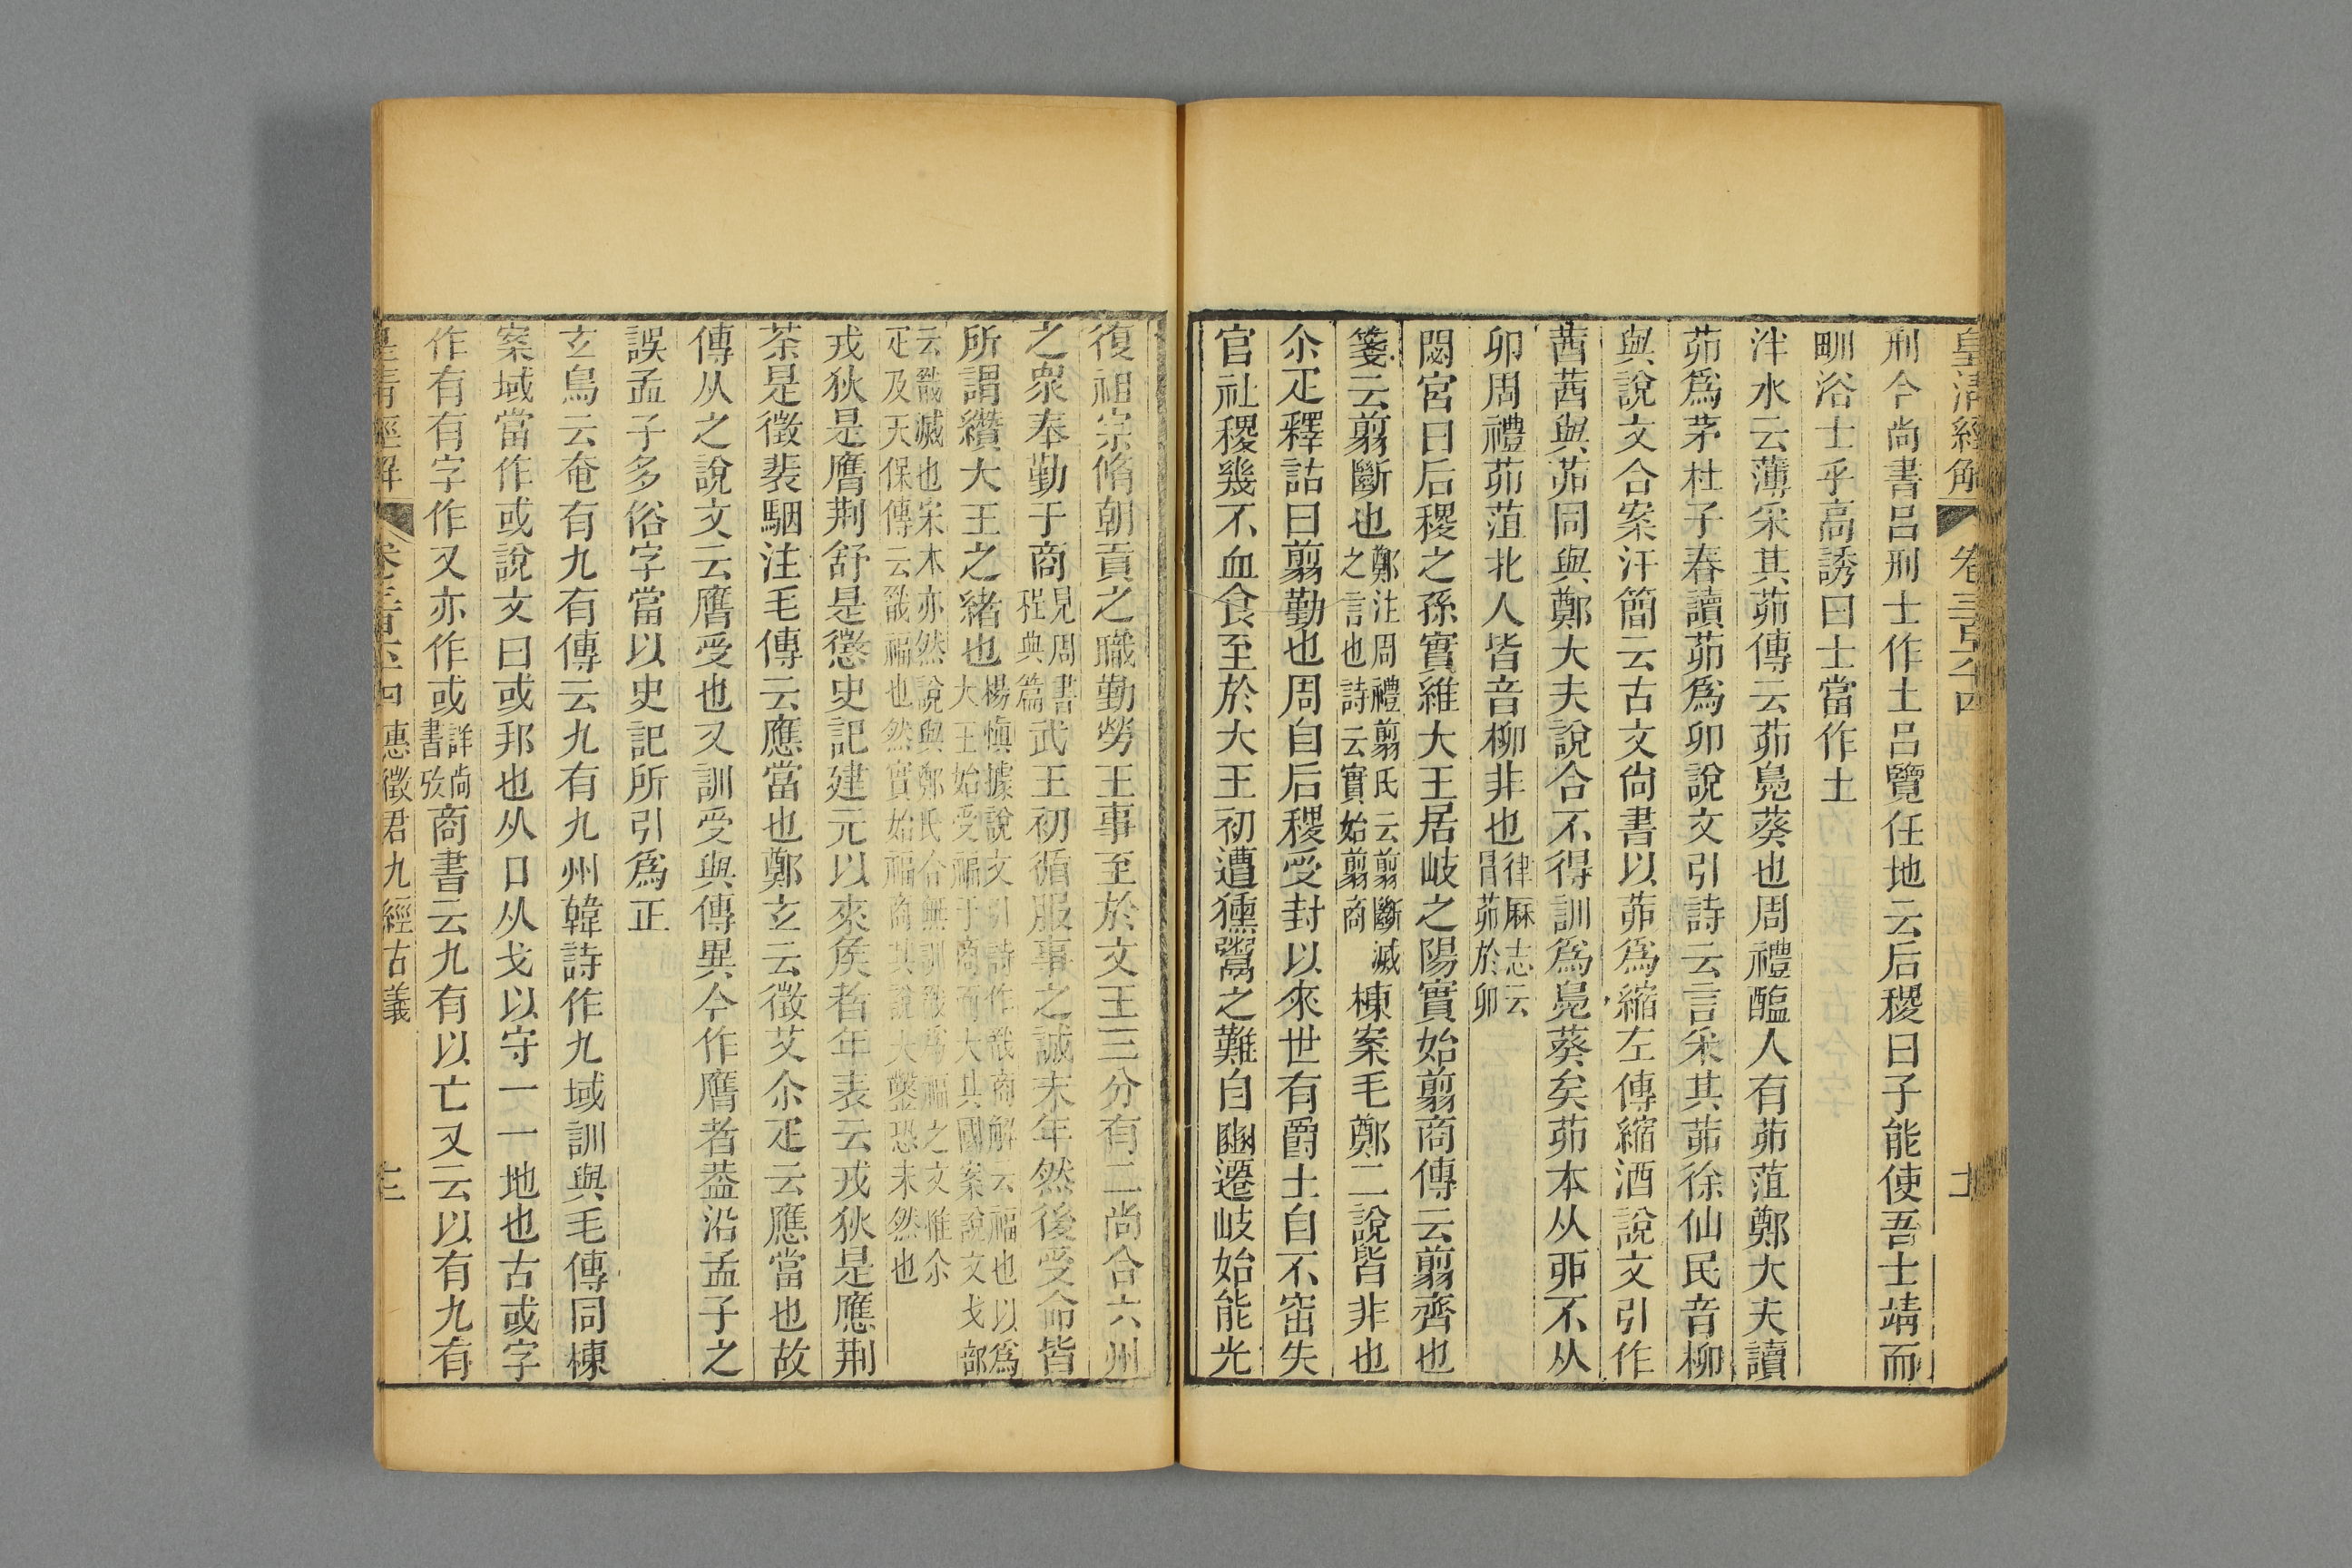 皇清經解 卷三百六十四
刑今尚書吕刑士作土吕覽任地云后稷曰子能使吾士靖而
甽浴士乎高誘曰士當作土
泮水云薄采其茆傳云茆鳧葵也周禮醢人有茆菹鄭大夫讀
茆爲茅杜子春讀茆爲卯說文引詩云言采其茆徐仙民音柳
與說文合案汗簡云古文尙書以茆爲縮左傳縮酒說文引作
茜茜與茆同與鄭大夫說合不得訓爲鳧葵矣茆本从丣不从
卯周禮茆菹北人皆音柳非也律厤志云冒茆於卯
閟宮曰后稷之孫實維大王居岐之陽實始翦商傳云翦齊也
箋云翦斷也鄭注周禮翦氏云翦斷滅之言也詩云實始翦商棟案毛鄭二說皆非也
尒疋釋詁曰翦勤也周自后稷受封以來世有爵土自不窋失
官社稷幾不血食至於大王初遭獯鬻之難自豳遷岐始能光
復祖宗脩朝貢之職勤勞王事至於文王三分有二尚合六州
之衆奉勤于商見周書程典篇武王初循服事之誠末年然後受命皆
所謂纘大王之緒也楊愼據說文引詩作戩商解云福也以爲大王始受福于商而大其國案說文戈部
云戩滅也宋本亦然說與鄭氏合無訓戩爲福之文惟尒疋及天保傳云戩福也然實始福商其說大鑿恐未然也
戎狄是膺荆舒是懲史記建元以來矦者年表云戎狄是應荆
荼是徵裴駰注毛傳云應當也鄭玄云徵艾尒疋云應當也故
傳从之說文云膺受也又訓受與傳異今作膺者葢沿孟子之
誤孟子多俗字當以史記所引爲正
玄鳥云奄有九有傳云九有九州韓詩作九域訓與毛傳同棟
案域當作或說文曰或邦也从口从戈以守一一地也古或字
作有有字作又亦作或詳尙書攷商書云九有以亡又云以有九有
皇清經解 卷三百六十四 惠徵君九經古義 十三